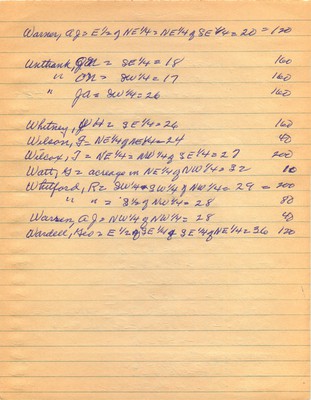 Warner, A J = E½ of NE¼ = NE¼ of SE¼ = 20 = 120
Unthank, = SE¼ = 18 160
" = SW¼ = 17 160
" Ja = SW¼ = 26 160
Whitney, = SE¼ = 26 160
Wilson, = NE¼ of NE¼ = 24 40
Wilson, J = NE¼ = NW¼ of SE¼ = 27 200
Watt, = acreage in NE¼ of NW¼ = 32 10
Whitford, R = SW¼ = SW¼ of NW¼ = 29 = 200
" " = S½ of NW¼ = 28 80
Warren, A J = NW¼ of NW¼ = 28 40
Wardell, Geo = E½ of SE¼ of SE¼ of NE¼ = 36 120